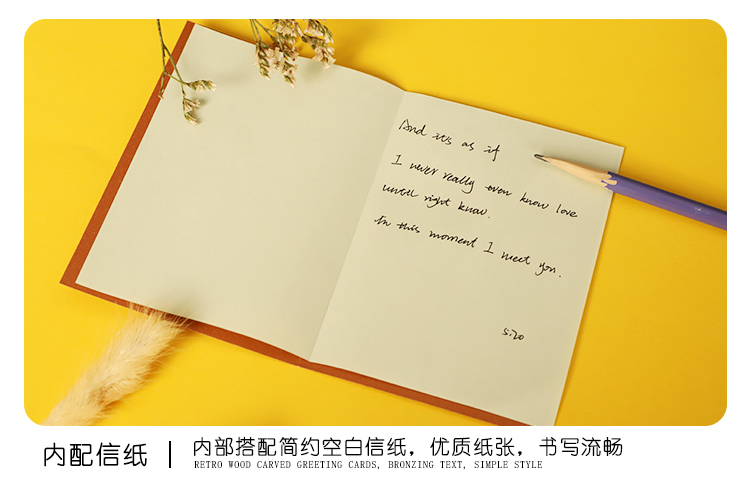 And it's as if
I never really even know love
until right know.
In this moment I meet you.
5.20
内配信纸 | 内部搭配简约空白信纸，优质纸张，书写流畅
RETRO WOOD CARVED GREETING CARDS, BRONZING TEXT, SIMPLE STYLE